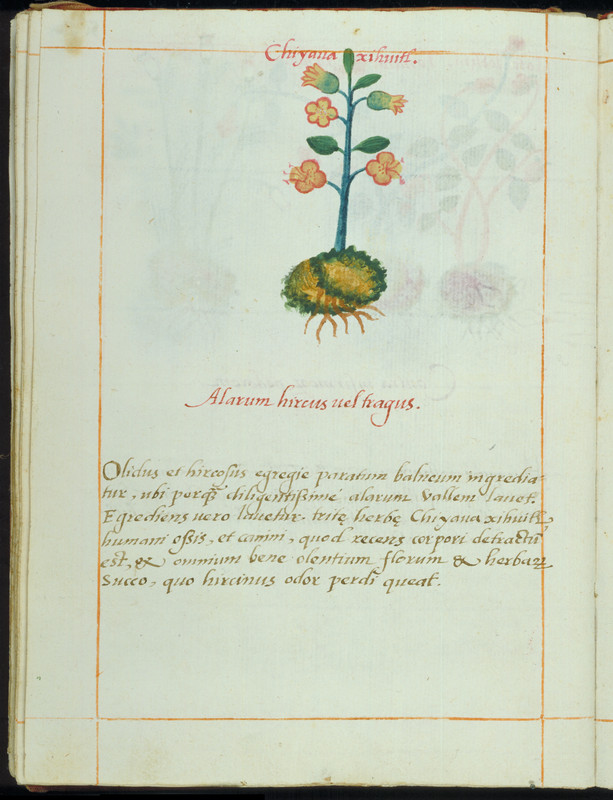 Chiyana xihuitl.
Alarum hircus vel tragus.
Olidus et hircosus egregie paratum balneum ingredia-
tur, ubi perq̃ diligentissime alarum vallem lavet.
Egrediens vero lavetur tritę herbę Chiyana xihuitl,
humani ossis, et canini, quod recens corpori detractũ
est, & omnium bene olentium florum & herbaꝝ
succo, quo hircinus odor perdi queat.